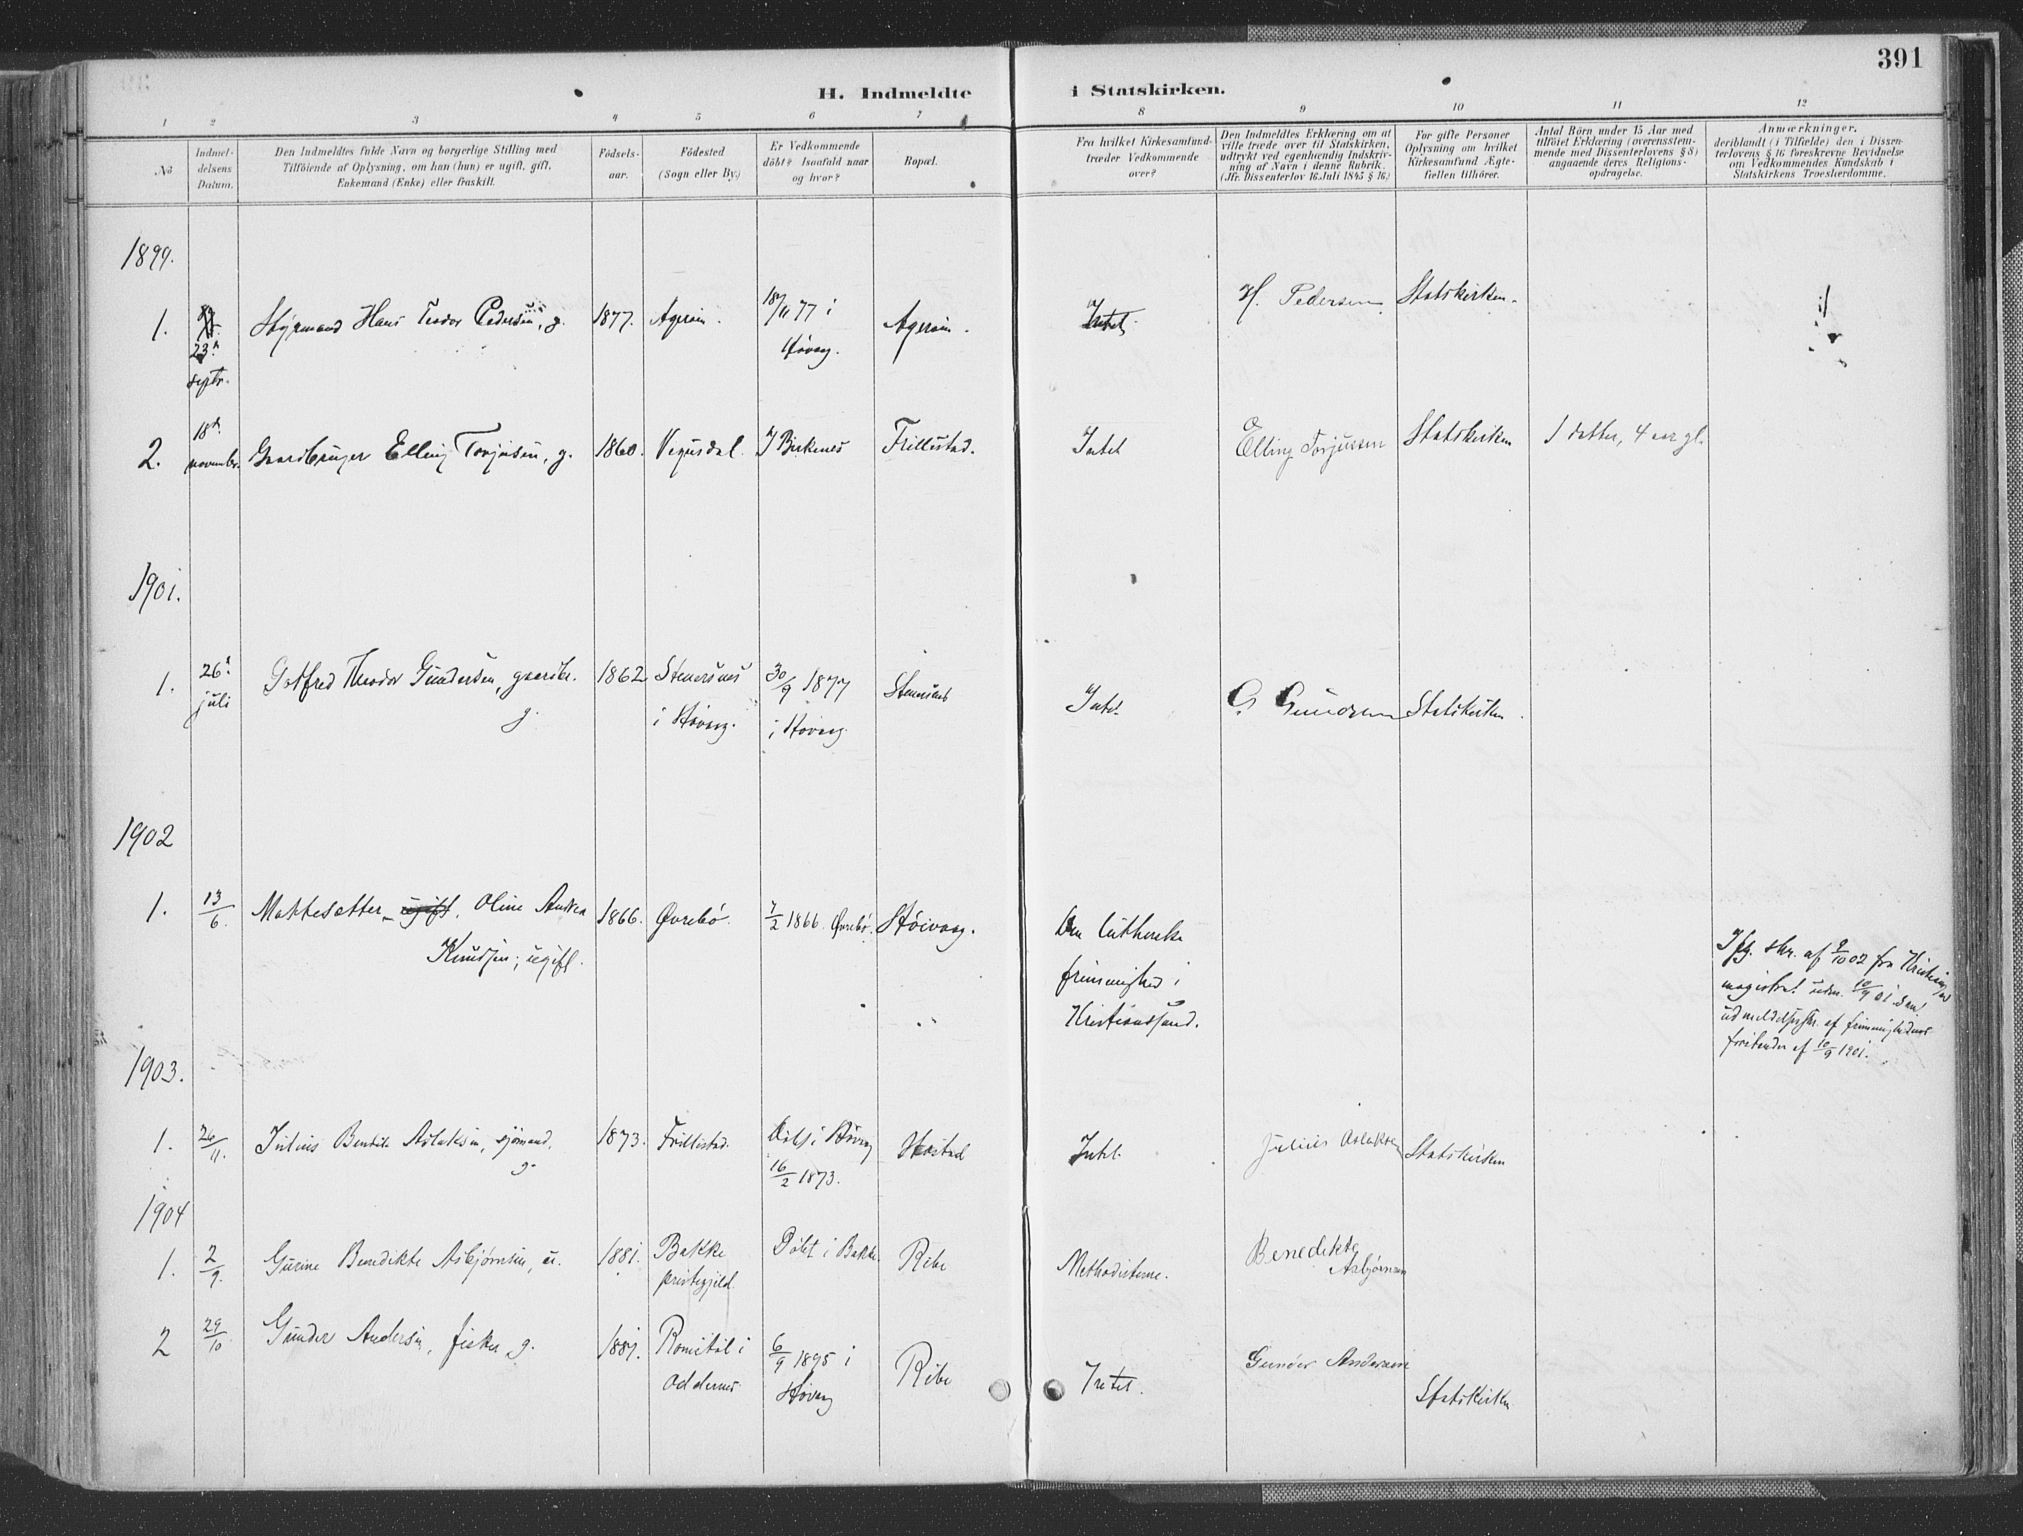 391
H. Indmeldte i Statskirken.
1 2 3 4 5 6 7 8 9 10 11 12
No
Indmel-
delsens
Datum.
Den Indmeldtes fulde Navn og borgerlige Stilling med
Tilföiende af Oplysning, om han (hun) er ugift, gift,
Enkemand (Enke) eller fraskilt.
Födsels-
aar.
Födested
(Sogn eller By.)
Er Vedkommende
döbt? Isaafald naar
og hvor?
Bopæl.
Fra hvilket Kirkesamfund
træder Vedkommende
over?
Den Indmeldtes Erklæring om at
ville træde over til Statskirken,
udtrykt ved egenhændig Indskriv-
ning af Navn i denne Rubrik.
(Jfr. Dissenterlov 16 Juli 1845 § 16.)
For gifte Personer
Oplysning om hvilket
Kirkesamfund Ægte-
fællen tilhörer.
Antal Börn under 15 Aar med
tilföiet Erklæring (overensstem-
mende med Dissenterlovens § 8)
angaaende deres Religions-
opdragelse.
Anmærkninger,
deriblandt (i Tilfælde) den i Dissen-
terlovens § 16 foreskrevne Bevidnelse
om Vedkommendes Kundskab i
Statskirkens Troeslærdomme.
1899.
1. 23d septr. Styrmand Hans Teodor Pedersen, g. 1877. Agerøin. 18/11 77 i Høvaag. Agerøin. Intet. H. Pedersen Statskirken.
2. 18d november Gaardbruger Elling Torjusen, g. 1860. Vegusdal. I Birkenes Frillestad. Intet Elling Torjussen Statskirken 1 datter, 4 aar gl.
1901.
1. 26d juli Gotfred Theodor Gundersen, gaardbr. g. 1862 Stenersnes i Høvaag. 30/9 1877 i Høvaag Intet. G Gundersen Statskirken.
1902
1. 13/6. ugift, Oline Knudsen, ugift. 1866. Øvrebø. 7/2 1866. Øvrebø. Høivaag.
Den lutherske
frimenighed i
Kristianssand.
Ifg. skr. af 9/10 02 fra
magistrat udm. 10/9 01
udmeldelsesskr. af frimenighedens
forstander af 10/9 1901.
1903.
1. 26/11. Julius Bentil Aslaksen, sjømand, g. 1873. Frillestad. Døbt i Høvaag 16/2 1873. Intet. Julius Aslaksen Statskirken
1904
1. 2/9. Gurine Benedikte Asbjørnsen, u. 1881. Bakke prestegjeld. Døbt i Bakke. Ribe Methodisterne. Benedikte Asbjørnsen
2 29/10. Gunder Andersen, fisker, g. 1881. Romstøl i Oddernes. 6/9 1895 i Høvaag Ribe Intet. Gunder Andersen Statskirken